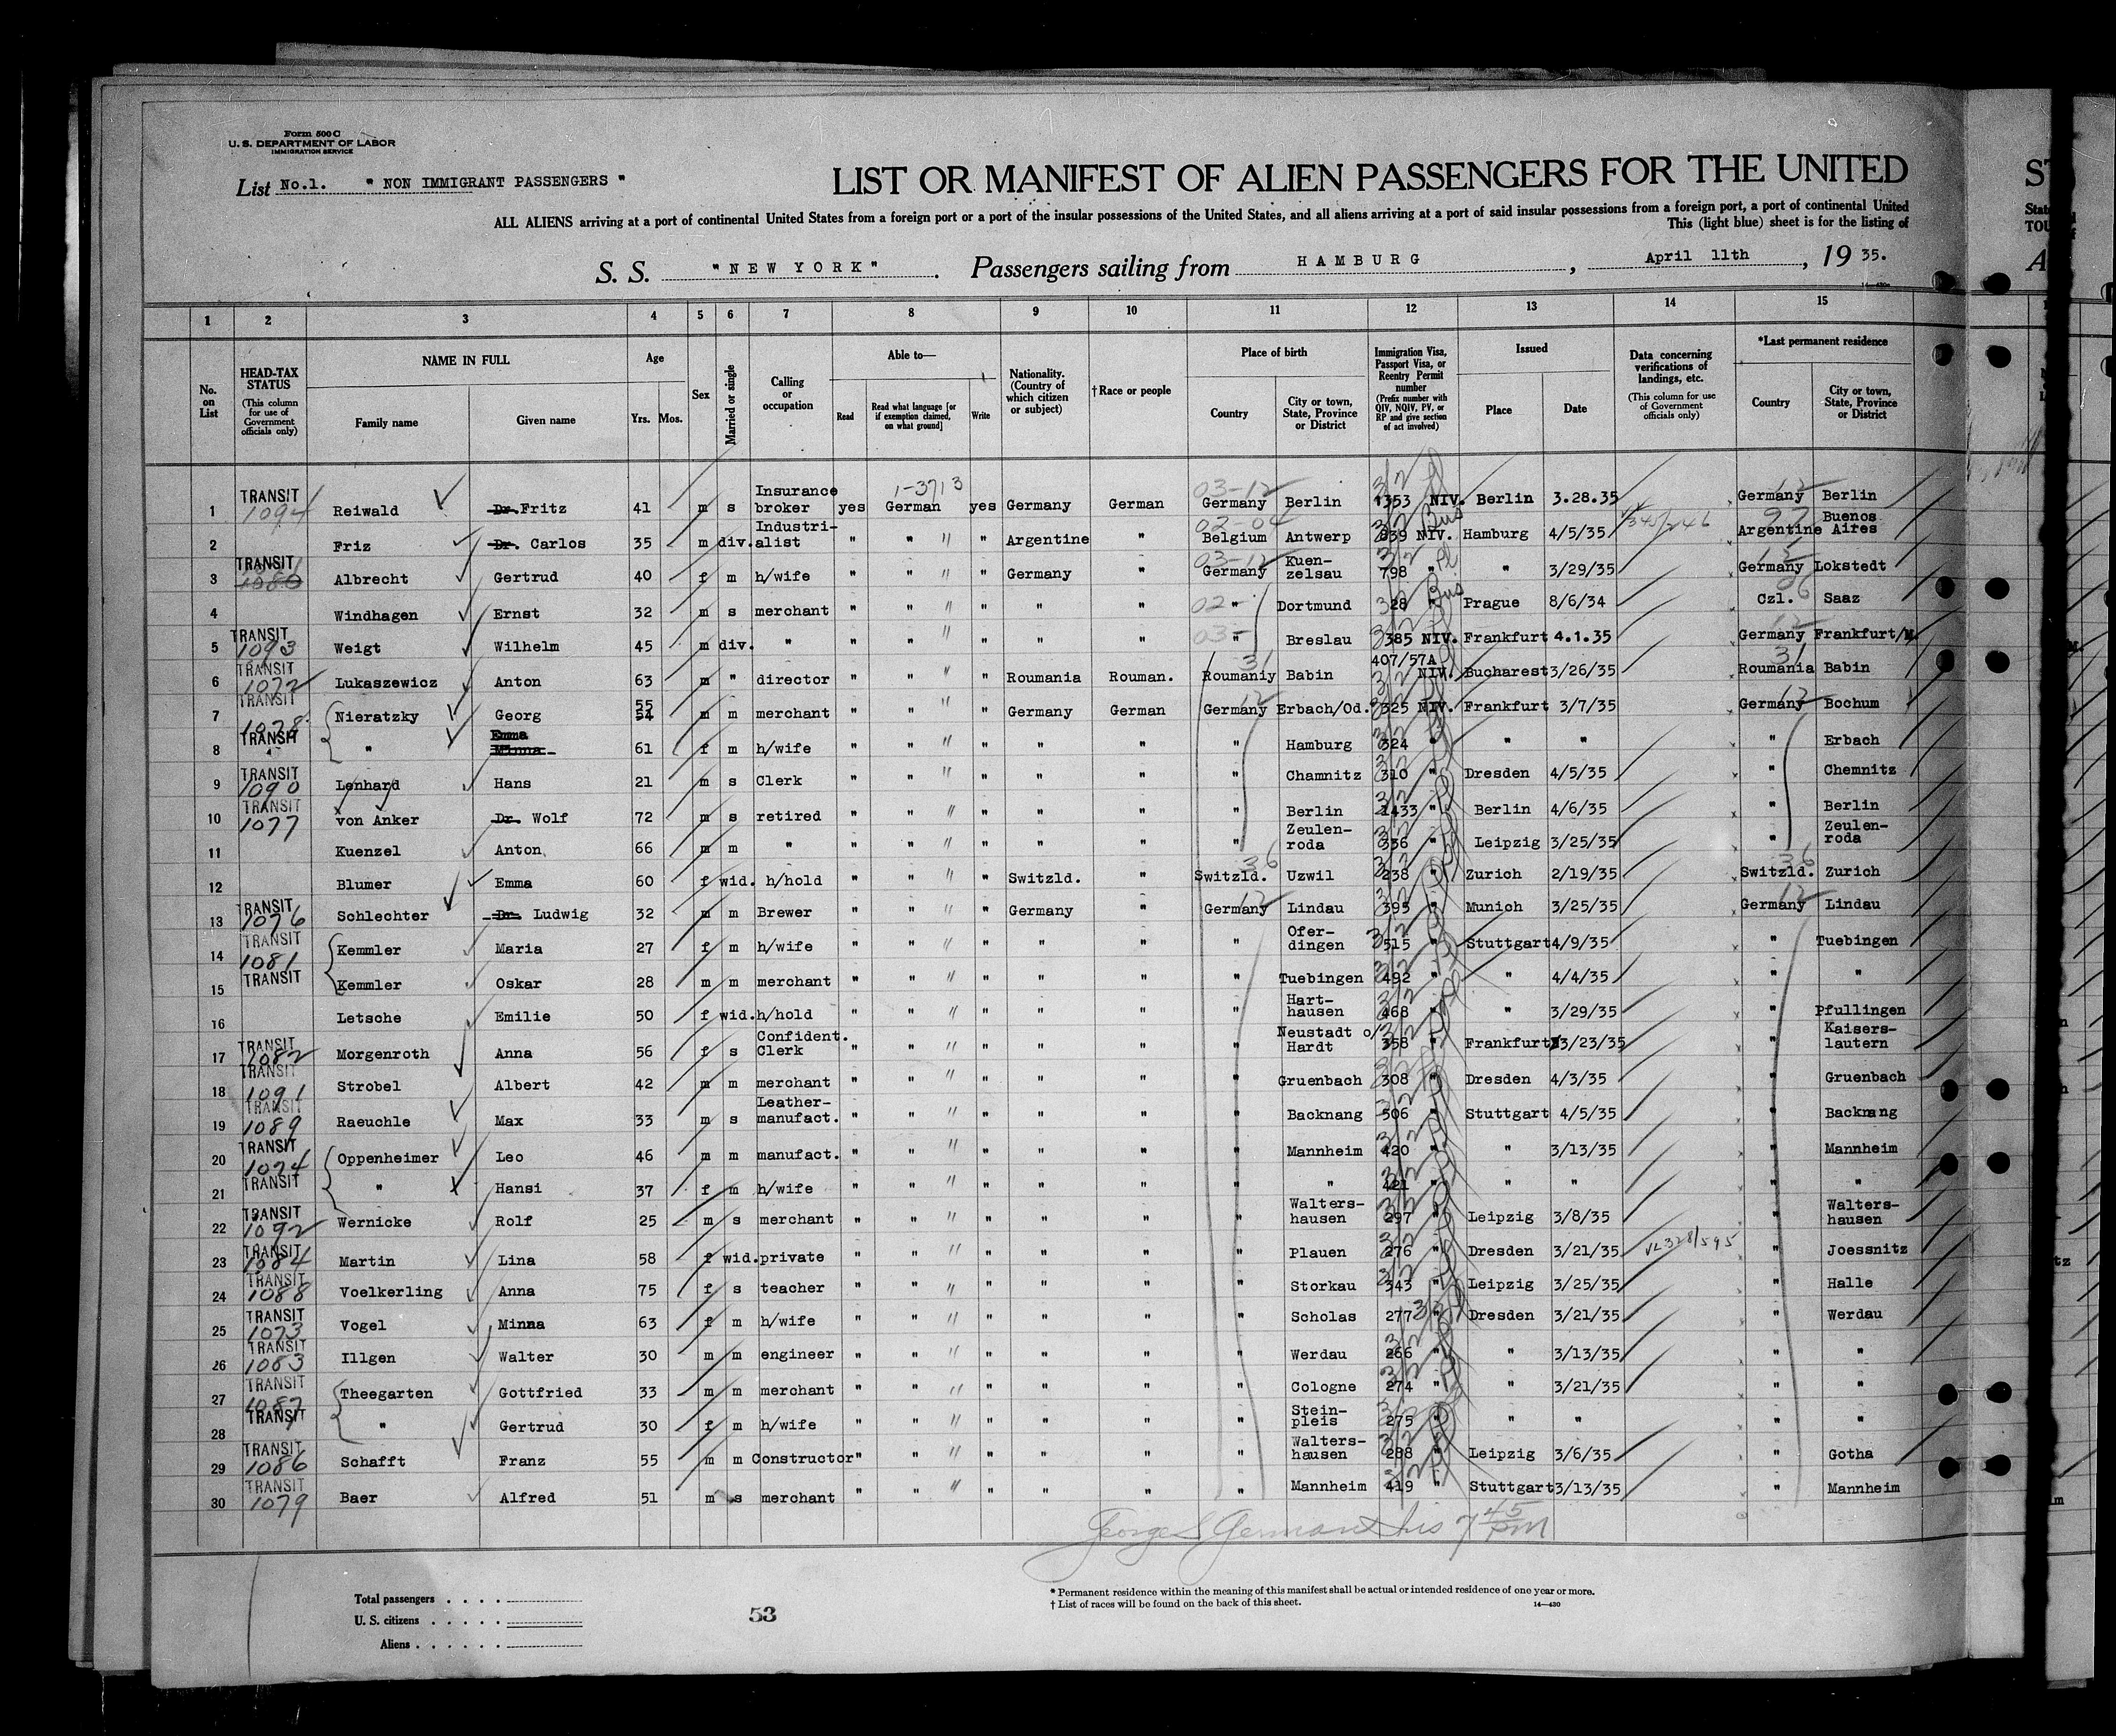 Form 500 C
U. S. DEPARTMENT OF LABOR
IMMIGRATION SERVICE
List No.1. " NON IMMIGRANT PASSENGERS "
LIST OR MANIFEST OF ALIEN PASSENGERS FOR THE UNITED
ALL ALIENS arriving at a port of continental United States from a foreign port or a port of the insular possessions of the United States, and all aliens arriving at a port of said insular possessions from a foreign port, a port of continental United
This (light blue) sheet is for the listing of
S. S. "NEW YORK". Passengers sailing from HAMBURG, April 11th, 19 35.
1 2 3 4 5 6 7 8 9 10 11 12 13 14 15
No. on List
HEAD-TAX STATUS (This column for use of Government officials only)
NAME IN FULL
Family name Given name
Age
Yrs. Mos.
Sex
Married or single
Calling or occupation
Able to—
Read Read what language [or if exemption claimed, on what ground] Write
Nationality. (Country of which citizen or subject)
†Race or people
Place of birth
Country City or town, State, Province or District
Immigration Visa, Passport Visa, or Reentry Permit number (Prefix number with QIV, NQIV, PV, or RP and give section of act involved)
Issued
Place Date
Data concerning verifications of landings, etc. (This column for use of Government officials only)
*Last permanent residence
Country City or town, State, Province or District
1 TRANSIT 1094 Reiwald Dr. Fritz 41 m s Insurance broker yes German 1-3713 yes Germany German 03-12 Germany Berlin 1353 NIV. Berlin 3.28.35 12 Germany Berlin
2 Friz Dr. Carlos 35 m div. Industri-alist " " " Argentine " 02-04 Belgium Antwerp 839 NIV. Hamburg 4/5/35 Argentine Buenos Aires
3 TRANSIT 1080 Albrecht Gertrud 40 f m h/wife " " " Germany " 03-12 Germany Kuen-zelsau 798 " " 3/29/35 12 Germany Lokstedt
4 Windhagen Ernst 32 m s merchant " " " " " 02- " Dortmund 28 " Prague 8/6/34 Czl. Saaz
5 TRANSIT 1093 Weigt Wilhelm 45 m div. " " " " " " 03- " Breslau 385 NIV. Frankfurt 4.1.35 Germany Frankfurt/M.
6 TRANSIT 1072 Lukaszewicz Anton 63 m " director " " " Roumania Rouman. 31 Roumaniy Babin 407/57A NIV. Bucharest 3/26/35 31 Roumania Babin
7 TRANSIT 1078 Nieratzky Georg 55 54 m m merchant " " " Germany German 12 Germany Erbach/Od. 325 NIV. Frankfurt 3/7/35 12 Germany Bochum
8 TRANSIT " " Emma Minna 61 f m h/wife " " " " " " Hamburg 324 " " " " Erbach
9 TRANSIT 1090 Lenhard Hans 21 m s Clerk " " " " " " Chamnitz 310 " Dresden 4/5/35 " Chemnitz
10 TRANSIT 1077 von Anker Dr. Wolf 72 m s retired " " " " " " Berlin 1433 " Berlin 4/6/35 " Berlin
11 Kuenzel Anton 66 m m " " " " " " " Zeulen-roda 336 " Leipzig 3/25/35 " Zeulen-roda
12 Blumer Emma 60 f wid. h/hold " " " Switzld. " 36 Switzld. Uzwil 238 " Zurich 2/19/35 36 Switzld. Zurich
13 TRANSIT 1076 Schlechter Dr. Ludwig 32 m m Brewer " " " Germany " 12 Germany Lindau 395 " Munich 3/25/35 12 Germany Lindau
14 TRANSIT 1081 Kemmler Maria 27 f m h/wife " " " " " " Ofer-dingen 515 " Stuttgart 4/9/35 " Tuebingen
15 TRANSIT Kemmler Oskar 28 m m merchant " " " " " " Tuebingen 492 " " 4/4/35 " "
16 Letsche Emilie 50 f wid. h/hold " " " " " " Hart-hausen 468 " " 3/29/35 " Pfullingen
17 TRANSIT 1082 Morgenroth Anna 56 f s Confident. Clerk " " " " " " Neustadt o/ Hardt 358 " Frankfurt 3/23/35 " Kaisers-lautern
18 TRANSIT 1091 Strobel Albert 42 m m merchant " " " " " " Gruenbach 308 " Dresden 4/3/35 " Gruenbach
19 TRANSIT 1089 Raeuchle Max 33 m s Leather-manufact. " " " " " " Backnang 506 " Stuttgart 4/5/35 " Backnang
20 TRANSIT 1074 Oppenheimer Leo 46 m m manufact. " " " " " " Mannheim 420 " " 3/13/35 " Mannheim
21 TRANSIT " Hansi 37 f m h/wife " " " " " " " 421 " " " " "
22 TRANSIT 1092 Wernicke Rolf 25 m s merchant " " " " " " Walters-hausen 297 " Leipzig 3/8/35 " Walters-hausen
23 TRANSIT 1084 Martin Lina 58 f wid. private " " " " " " Plauen 276 " Dresden 3/21/35 VL328/595 " Joessnitz
24 TRANSIT 1088 Voelkerling Anna 75 f s teacher " " " " " " Storkau 343 " Leipzig 3/25/35 " Halle
25 TRANSIT 1073 Vogel Minna 63 f m h/wife " " " " " " Scholas 277 " Dresden 3/21/35 " Werdau
26 TRANSIT 1083 Illgen Walter 30 m m engineer " " " " " " Werdau 266 " " 3/13/35 " "
27 TRANSIT 1087 Theegarten Gottfried 33 m m merchant " " " " " " Cologne 274 " " 3/21/35 " "
28 TRANSIT " Gertrud 30 f m h/wife " " " " " " Stein-pleis 275 " " " " "
29 TRANSIT 1086 Schafft Franz 55 m m Constructor " " " " " " Walters-hausen 288 " Leipzig 3/6/35 " Gotha
30 TRANSIT 1079 Baer Alfred 51 m s merchant " " " " " " Mannheim 419 " Stuttgart 3/13/35 " Mannheim
Total passengers
U. S. citizens
Aliens
53
* Permanent residence within the meaning of this manifest shall be actual or intended residence of one year or more.
† List of races will be found on the back of this sheet.
14—430